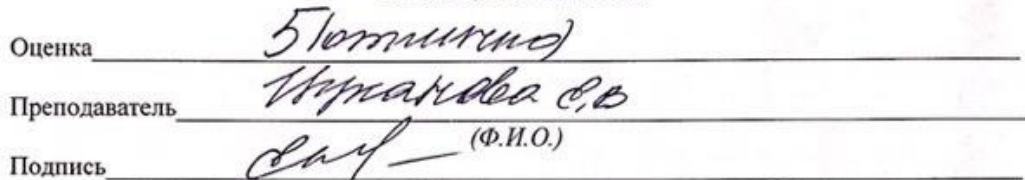 Оценка 5 (отлично)
Преподаватель С.В
(Ф.И.О.)
Подпись